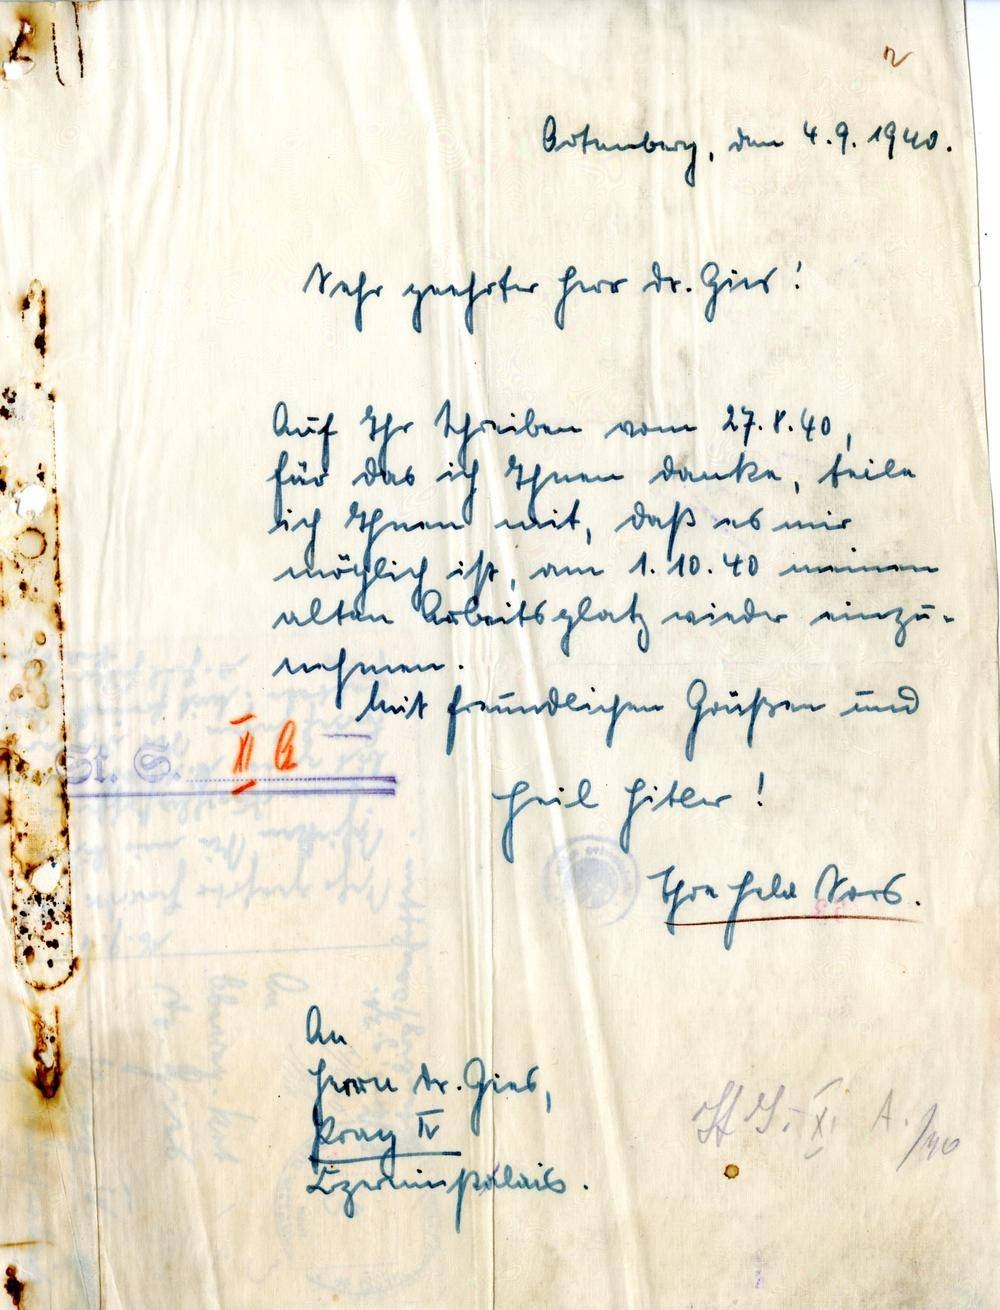 Artenberg, den 4.9.1940.
Sehr geehrter Herr Dr. Gies!
Auf Ihr Schreiben vom 27.8.40,
für das ich Ihnen danke, teile
ich Ihnen mit, daß es mir
möglich ist, am 1.10.40 meinen
alten Arbeitsplatz wieder einzu-
nehmen.
Mit freundlichen Grüßen und
St. S. II A
Heil Hitler!
Ihre Hela
An
Herrn Dr. Gies,
Prag IV
Czerninpalais.
St. S. XI A. /40